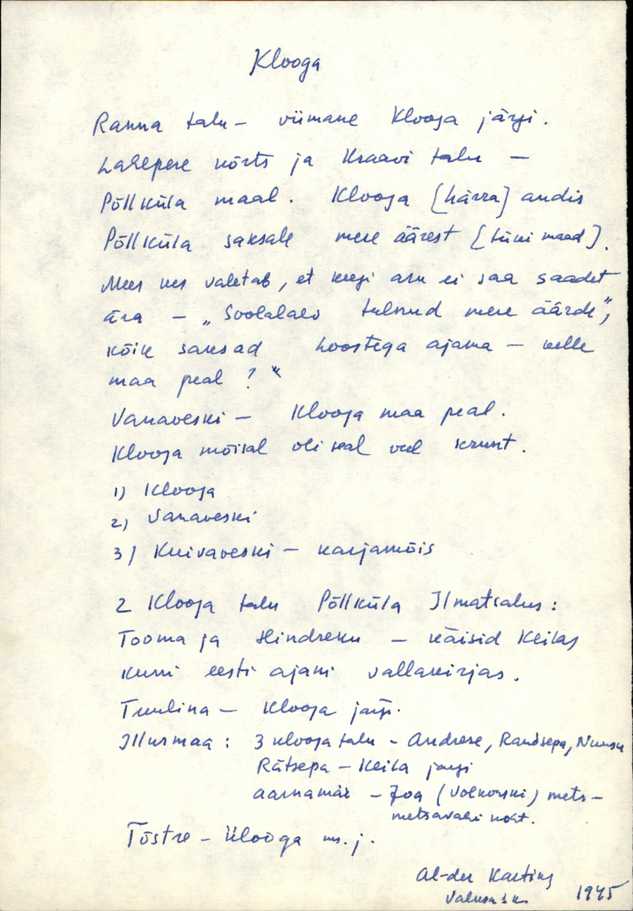 Klooga
Ranna talu – viimane Klooga järgi.
Lahepere kõrts ja Kraavi talu –
Põllküla maal. Klooga [härra] andis
Põllküla saksale mere äärest [tüki maad].
Mees valetab, et keegi aru ei saa saadet
ära – „Soolalaev tulnud mere äärde",
kõik saksad hoostega ajama – kelle
maa peal?"
Vanaveski – Klooga maa peal.
Klooga mõisal oli seal veel krunt.
1) Klooga
2) Vanaveski
3) Kuivaveski – karjamõis
2 Klooga talu Põllküla Ilmatsalus:
Tooma ja Hindreku – käisid Keilas
kuni eesti ajani vallakirjas.
Tuulina – Klooga järgi.
Illurmaa: 3 klooga talu – Andrese, Randsepa,
Rätsepa – Keila järgi
aarnamäe – Joa (Volkonski) mets-
metsavahi koht.
Tõstre – Klooga ms. j.
Al-der
1975